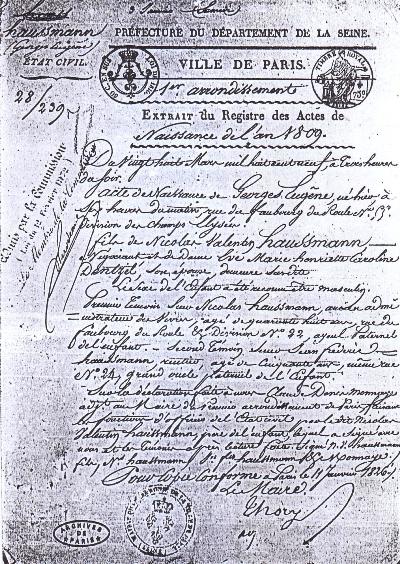 haussmann
Georges Eugène
ÉTAT CIVIL.
28/239
PRÉFECTURE DU DÉPARTEMENT DE LA SEINE.
VILLE DE PARIS.
TIMBRE ROYAL
1er arrondissement
EXTRAIT du Registre des Actes de
Naissance de l'an 1809.
Du Vingt huit Mars mil huit cent neuf, à trois heures
du soir.
acte de Naissance de Georges Eugène, né hier à
heures du matin, rue du faubourg du Roule No
Division des Champs Elysées
fils de Nicolas Valentin haussmann
Négociant et de Dame Eve Marie henriette Caroline
Dentzel, son épouse, demeure susdite
Le Sexe de l'Enfant a été reconnu être masculin.
Premier Témoin Sieur Nicolas haussmann, ancien admi-
nistrateur de âgé de quarante huit ans, rue du
faubourg du Roule Division No 22, ayeul Paternel
de l'enfant. Second Témoin Sieur Jean Frédéric
haussmann rentier âgé de Cinquante ans, même rue
No 24, grand oncle Paternel de l'Enfant.
Sur la déclaration faite à nous
adjoint au Maire du Premier arrondissement de Paris, faisant
les fonctions d'officier de l'Etat civil par le dit Nicolas
Valentin haussmann, père de l'enfant, lequel a signé avec
nous et les témoins après lecture faite. Signé N. V. haussmann
fils, N. haussmann haussmann
Pour copie conforme à Paris le 11 Janvier 1826
Le Maire
ARCHIVES
DE PARIS